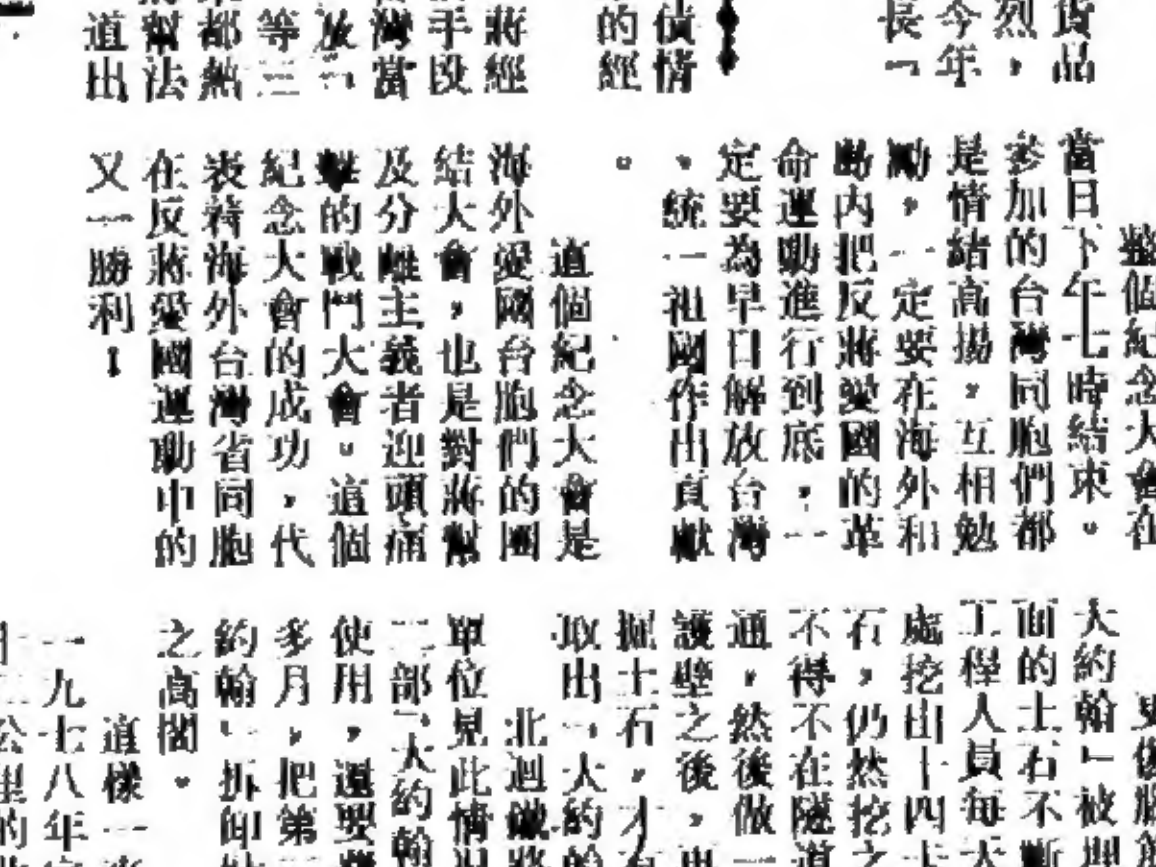 貨品
烈，
今年
長一
債情
的經
蔣經
手段
灣當
放
等三
都熱
幫法
道出
整個紀念大會在
當日下午七時結束。
參加的台灣同胞們都
是情緒高揚，互相勉
勵，一定要在海外和
島內把反蔣愛國的革
命運動進行到底，一
定要為早日解放台灣
、統一祖國作出貢獻
。
這個紀念大會是
海外愛國台胞們的團
結大會，也是對蔣幫
及分離主義者迎頭痛
擊的戰鬥大會。這個
紀念大會的成功，代
表着海外台灣省同胞
在反蔣愛國運動中的
又一勝利！
大約翰」被埋
面的土石不斷
工程人員每天
處挖出十四
石，仍然挖之
不得不在隧道
通，然後做
護壁之後，
掘土石，才
取出「大約
北迴鐵路
單位見此情況
二部「大約翰
使用，還要
多月，把第二
約翰」拆卸
之高閣。
這樣一來
一九七八年
公里的